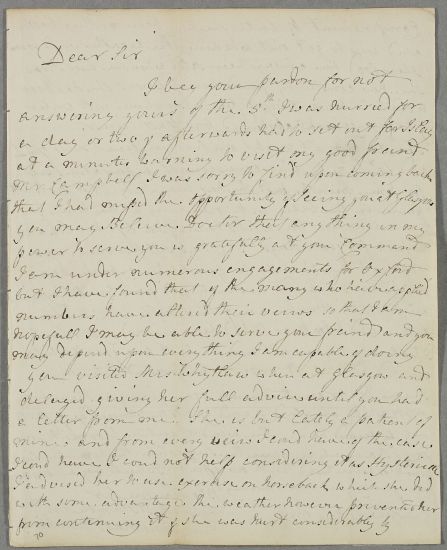 Dear Sir
I beg your pardon for not
answering yours of the 5th I was hurried for
a day or two & afterwards had to set out for Islay
at a minutes warning to visit my good freind
Mr Campbell I was sorry to find upon coming back
that I had missed the opportunity of seeing you at Glasgow
you may beleive Doctor that any thing in my
power to serve you is gratefully at your Command
I am under numerous engagements for Oxford
but I have found that of the many who have applied
numbers have altered their views so that I am
hopefull I may be able to serve your freind and you
may depend upon everything I am capable of doing
you visited Mrs Whytlaw when at Glasgow and
delayed giving her full advice until you had
a letter from me. She is but lately a patient of
mine and from every view I coud have of the case
I coud have I coud not help considering it as Hysterical
I advised her to use exercise on horseback which she did
with some advantage the weather however prevented her
from continuing it & she was hurt considerably by